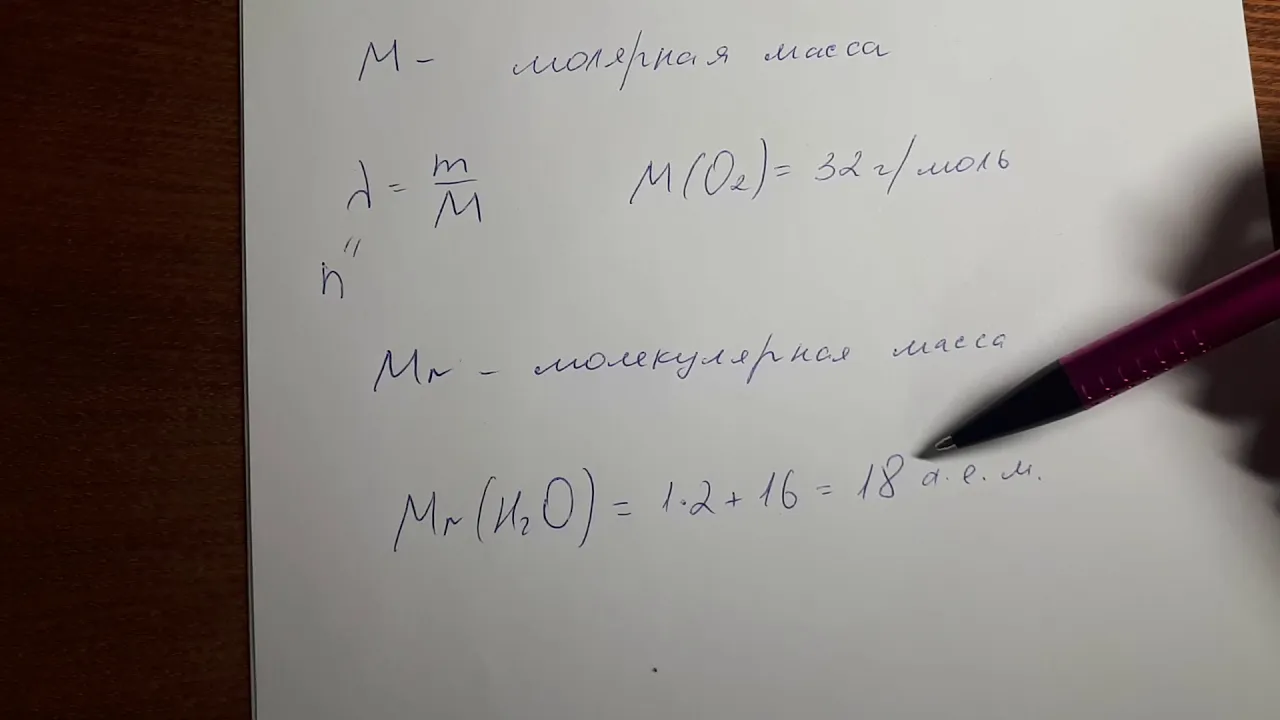 M - молярная масса
λ = m/M M(O₂) = 32 г/моль
n"
Mr - молекулярная масса
Mr(H₂O) = 1·2 + 16 = 18 а.е.м.